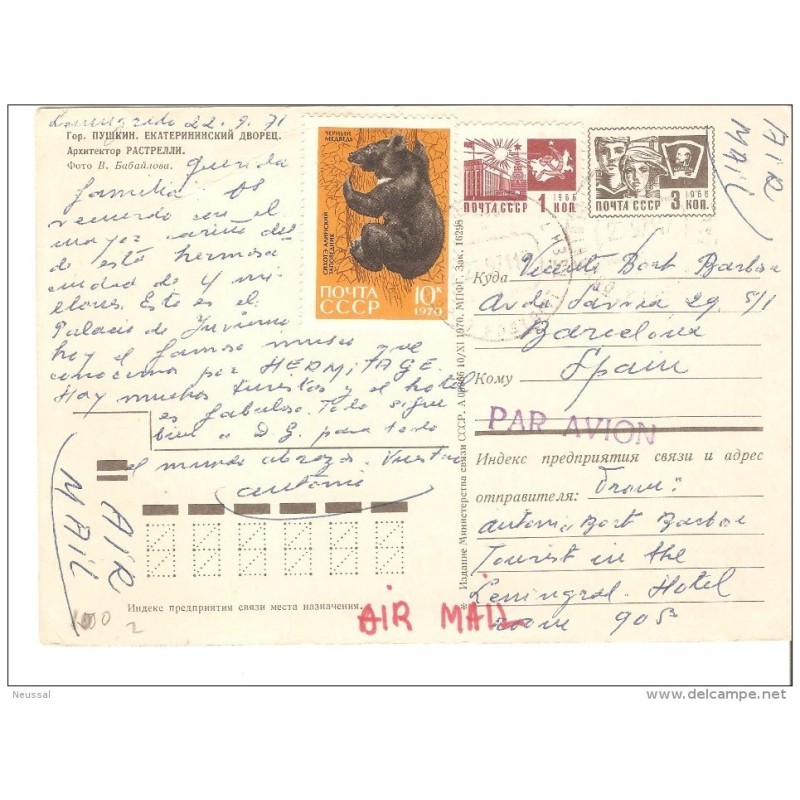 Leningrado 22.9.71
Гор. ПУШКИН. ЕКАТЕРИНИНСКИЙ ДВОРЕЦ.
Архитектор РАСТРЕЛЛИ.
Фото В. Бабайлова.
Querida
familia os
recuerdo con el
mayor cariño des
de esta hermosa
ciudad de 4 mi
llones. Este es el
Palacio de Invierno
hoy el famoso museo que
conocemos por HERMITAGE.
Hay muchos turistas y el hotel
es fabuloso. Todo sigue
bien a D.G. para todo
el mundo abrazos. Vuestro
Antonio
AIR
MAIL
1000
2
Индекс предприятия связи места назначения.
AIR MAIL
ЧЕРНЫЙ
МЕДВЕДЬ
СИХОТЭ-АЛИНСКИЙ
ЗАПОВЕДНИК
ПОЧТА
СССР
10к
1970
1966
ПОЧТА СССР 1 КОП.
1966
ПОЧТА СССР 3 КОП.
AIR
MAIL
* Издание Министерства связи СССР. 10/XI 1970, МПФГ. Зак. 16298
Куда Vicente Bort Barbosa
Avda 29, 5/1
Barcelona
Кому Spain
PAR AVION
Индекс предприятия связи и адрес
отправителя: From:
Antonio Bort Barbosa
Tourist in the
Leningrad. Hotel
room 905
Neussal
delcampe.net